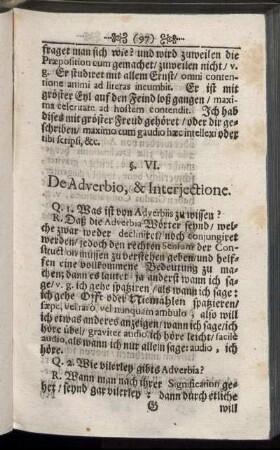 (97)
fraget man sich wie? und wird zuweilen die
Præpositio cum gemachet / zuweilen nicht / v.
g. Er studiret mit allem Ernst / omni conten-
tione animi ad literas incumbit. Er ist mit
gröster Eyl auf den Feind loß gangen / maxi-
ma celeritate ad hostem contendit. Ich hab
dises mit gröster Freud gehöret / oder dir ge-
schriben / maximo cum gaudio hæc intellexi oder
tibi scripsi, &c.
§. VI.
De Adverbio, & Interjectione.
Q. 1. Was ist von Adverbiis zu wissen?
R. Daß die Adverbia Wörter seynd / wel-
che zwar weder declinirt / noch conjungiret
werden / jedoch den rechten Sensum der Con-
struction müssen zu verstehen geben / und helf-
fen eine vollkommene Bedeutung zu ma-
chen; dann es lautet ja anderst wann ich sa-
ge / v. g. ich gehe spaziren / als wann ich sage:
ich gehe Offt oder Niemahlen spaziren /
sæpè, vel rarò, vel nunquam ambulo, also will
ich etwas anderes anzeigen / wann ich sage / ich
höre übel / graviter audio, ich höre leicht / facilè
audio, als wann ich nur allein sage: audio, ich
höre.
Q. 2. Wie vilerley gibts Adverbia?
R. Wann man nach ihrer Signification ge-
het / seynd gar vilerley: dann durch etliche
G will